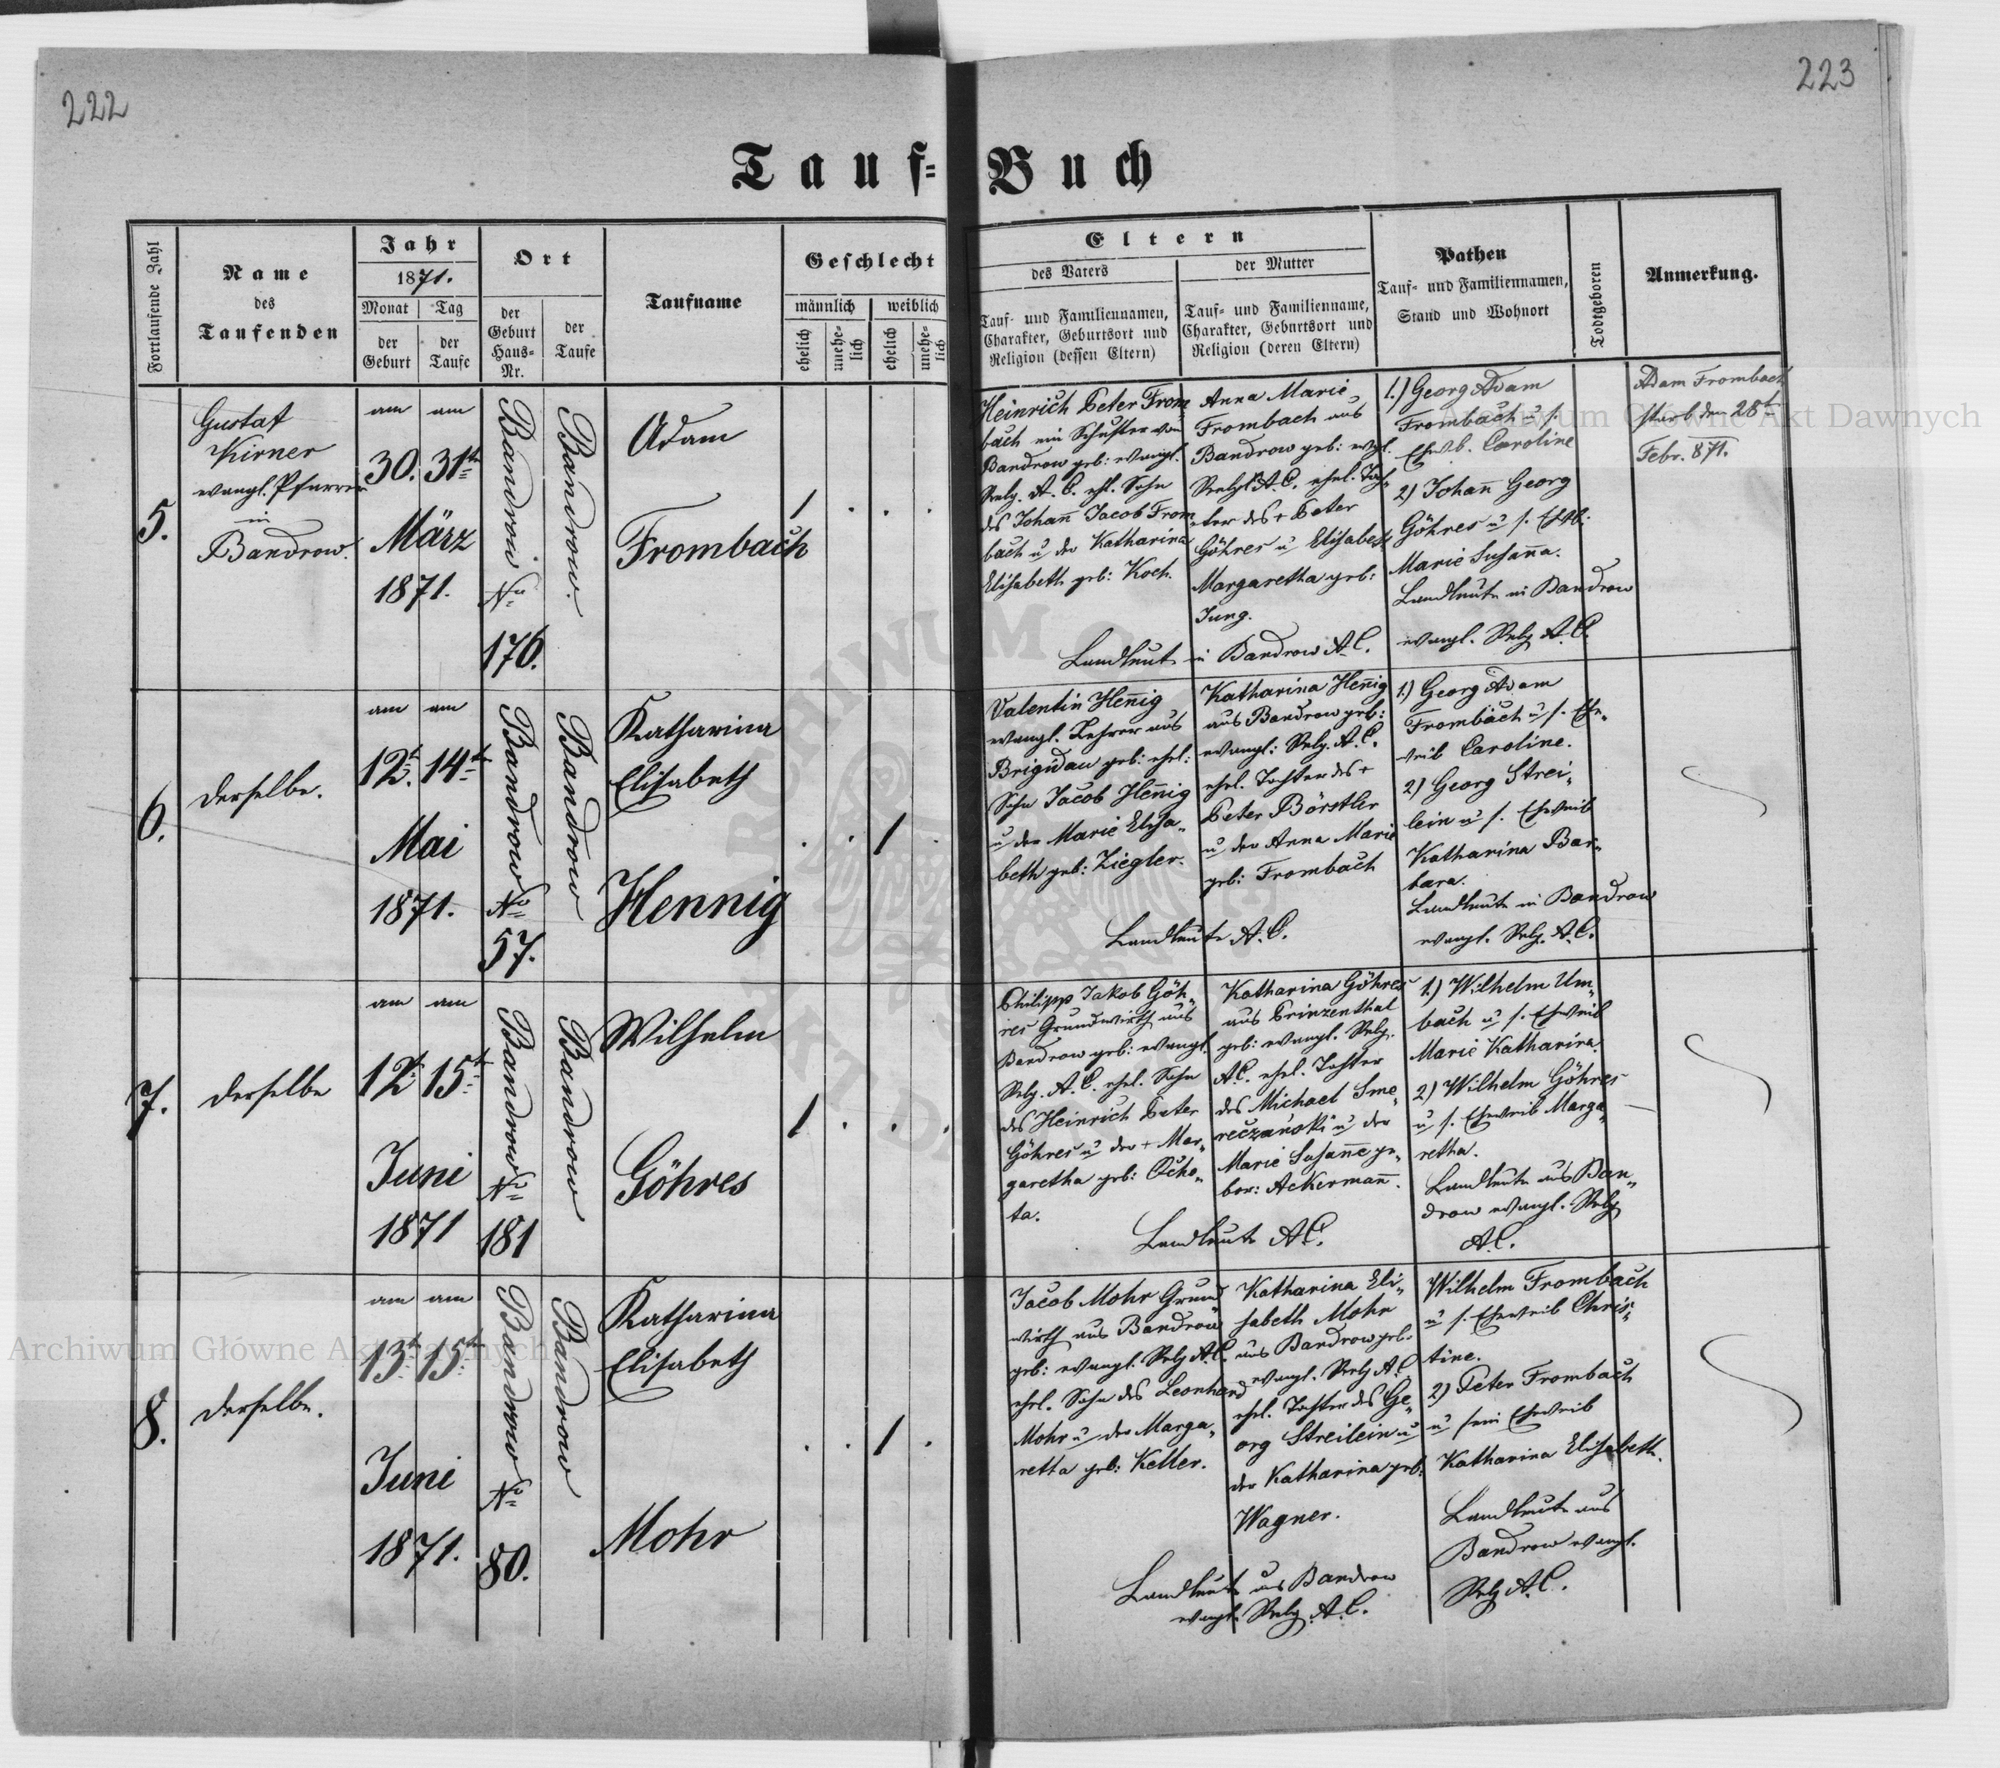 222
223
Tauf= Buch
Fortlaufende Zahl
Name
des
Taufenden
Jahr
1871.
Monat
Tag
der
Geburt
der
Taufe
Ort
der
Geburt
Haus=
Nr.
der
Taufe
Taufname
Geschlecht
männlich
weiblich
ehelich
unehe=
lich
ehelich
unehe=
lich
Eltern
des Vaters
der Mutter
Tauf- und Familiennamen,
Charakter, Geburtsort und
Religion (dessen Eltern)
Tauf- und Familienname,
Charakter, Geburtsort und
Religion (deren Eltern)
Pathen
Tauf- und Familiennamen,
Stand und Wohnort
Todtgeboren
Anmerkung.
5.
Gustaf
Kirner
evangl. Pfarrer
in
Bandrow.
am am
30. 31te
März
1871.
Bandrow No
176.
Bandrow.
Adam
Frombach
1 . . .
Heinrich Peter From
bach ein Schuster von
Bandrow geb: evangl.
Relg. A. C. ehl. Sohn
des Johañ Jacob From
bach u der Katharina
Elisabeth geb: Koch.
Anna Marie
Frombach aus
Bandrow geb: evgl.
Relgi A.C. ehel. Toch
ter des + Peter
Göhres u Elisabeth
Margaretha geb:
Jung.
Landleute in Bandrow A.C.
1.) Georg Adam
Frombach u s.
Ehwb. Caroline
2) Johañ Georg
Göhres u s. Ehwb:
Marie Susaña.
Landleute in Bandrow
evangl. Relg A.C.
Adam Frombach
starb den 28t
Febr. 871.
6.
derselbe.
am am
12t. 14te
Mai
1871.
Bandrow No
57.
Bandrow
Katharina
Elisabeth
Hennig
. . 1 .
Valentin Heñig
evangl. Lehrer aus
Brigidau geb: ehel:
Sohn Jacob Heñig
u der Marie Elisa„
beth geb: Ziegler.
Katharina Heñig
aus Bandrow geb:
evangl: Relg. A.C.
ehel. Tochter des +
Peter Börstler
u der Anna Marie
geb: Frombach
Landleute A.C.
1.) Georg Adam
Frombach u s. Ehe„
weib Caroline.
2) Georg Strei„
lein u s. Eheweib
Katharina Bar„
bara.
Landleute in Bandrow
evangl. Relg. A.C.
7.
derselbe
am am
12t 15t
Juni
1871
Bandrow No
181
Bandrow
Wilhelm
Göhres
1 . . .
Philipp Jakob Göh„
res Grundwirth aus
Bandrow geb: evangl.
Relg. A.C. ehel. Sohn
des Heinrich Peter
Göhres u der + Mar„
garetha geb: Ocho„
ta.
Katharina Göhres
aus Prinzenthal
geb: evangl. Relg.
A.C. ehel. Tochter
des Michael Sme„
reczański u der
Marie Susañe ge„
bor: Ackermañ.
Landleute A.C.
1.) Wilhelm Um„
bach u s. Eheweib
Marie Katharina.
2) Wilhelm Göhres
u s. Eheweib Marga„
retha.
Landleute aus Ban„
drow evangl. Relg
A.C.
8.
derselbe.
am am
13t 15t
Juni
1871.
Bandrow No
80.
Bandrow
Katharina
Elisabeth
Mohr
. . 1 .
Jacob Mohr Grund
wirth aus Bandrow
geb: evangl. Relg A.C.
ehel. Sohn des Leonhard
Mohr u der Marga„
retta geb: Keller.
Katharina Eli„
sabeth Mohr
aus Bandrow geb.
evangl. Relg A.C
ehel. Tochter des Ge„
org Streilein u
der Katharina geb:
Wagner.
Landleute aus Bandrow
evangl. Relg. A.C.
Wilhelm Frombach
u s. Eheweib Chris„
tine.
2) Peter Frombach
u sein Eheweib
Katharina Elisabeth.
Landleute aus
Bandrow evangl.
Relg A.C.
Archiwum Główne Akt Dawnych
Archiwum Główne Akt Dawnych